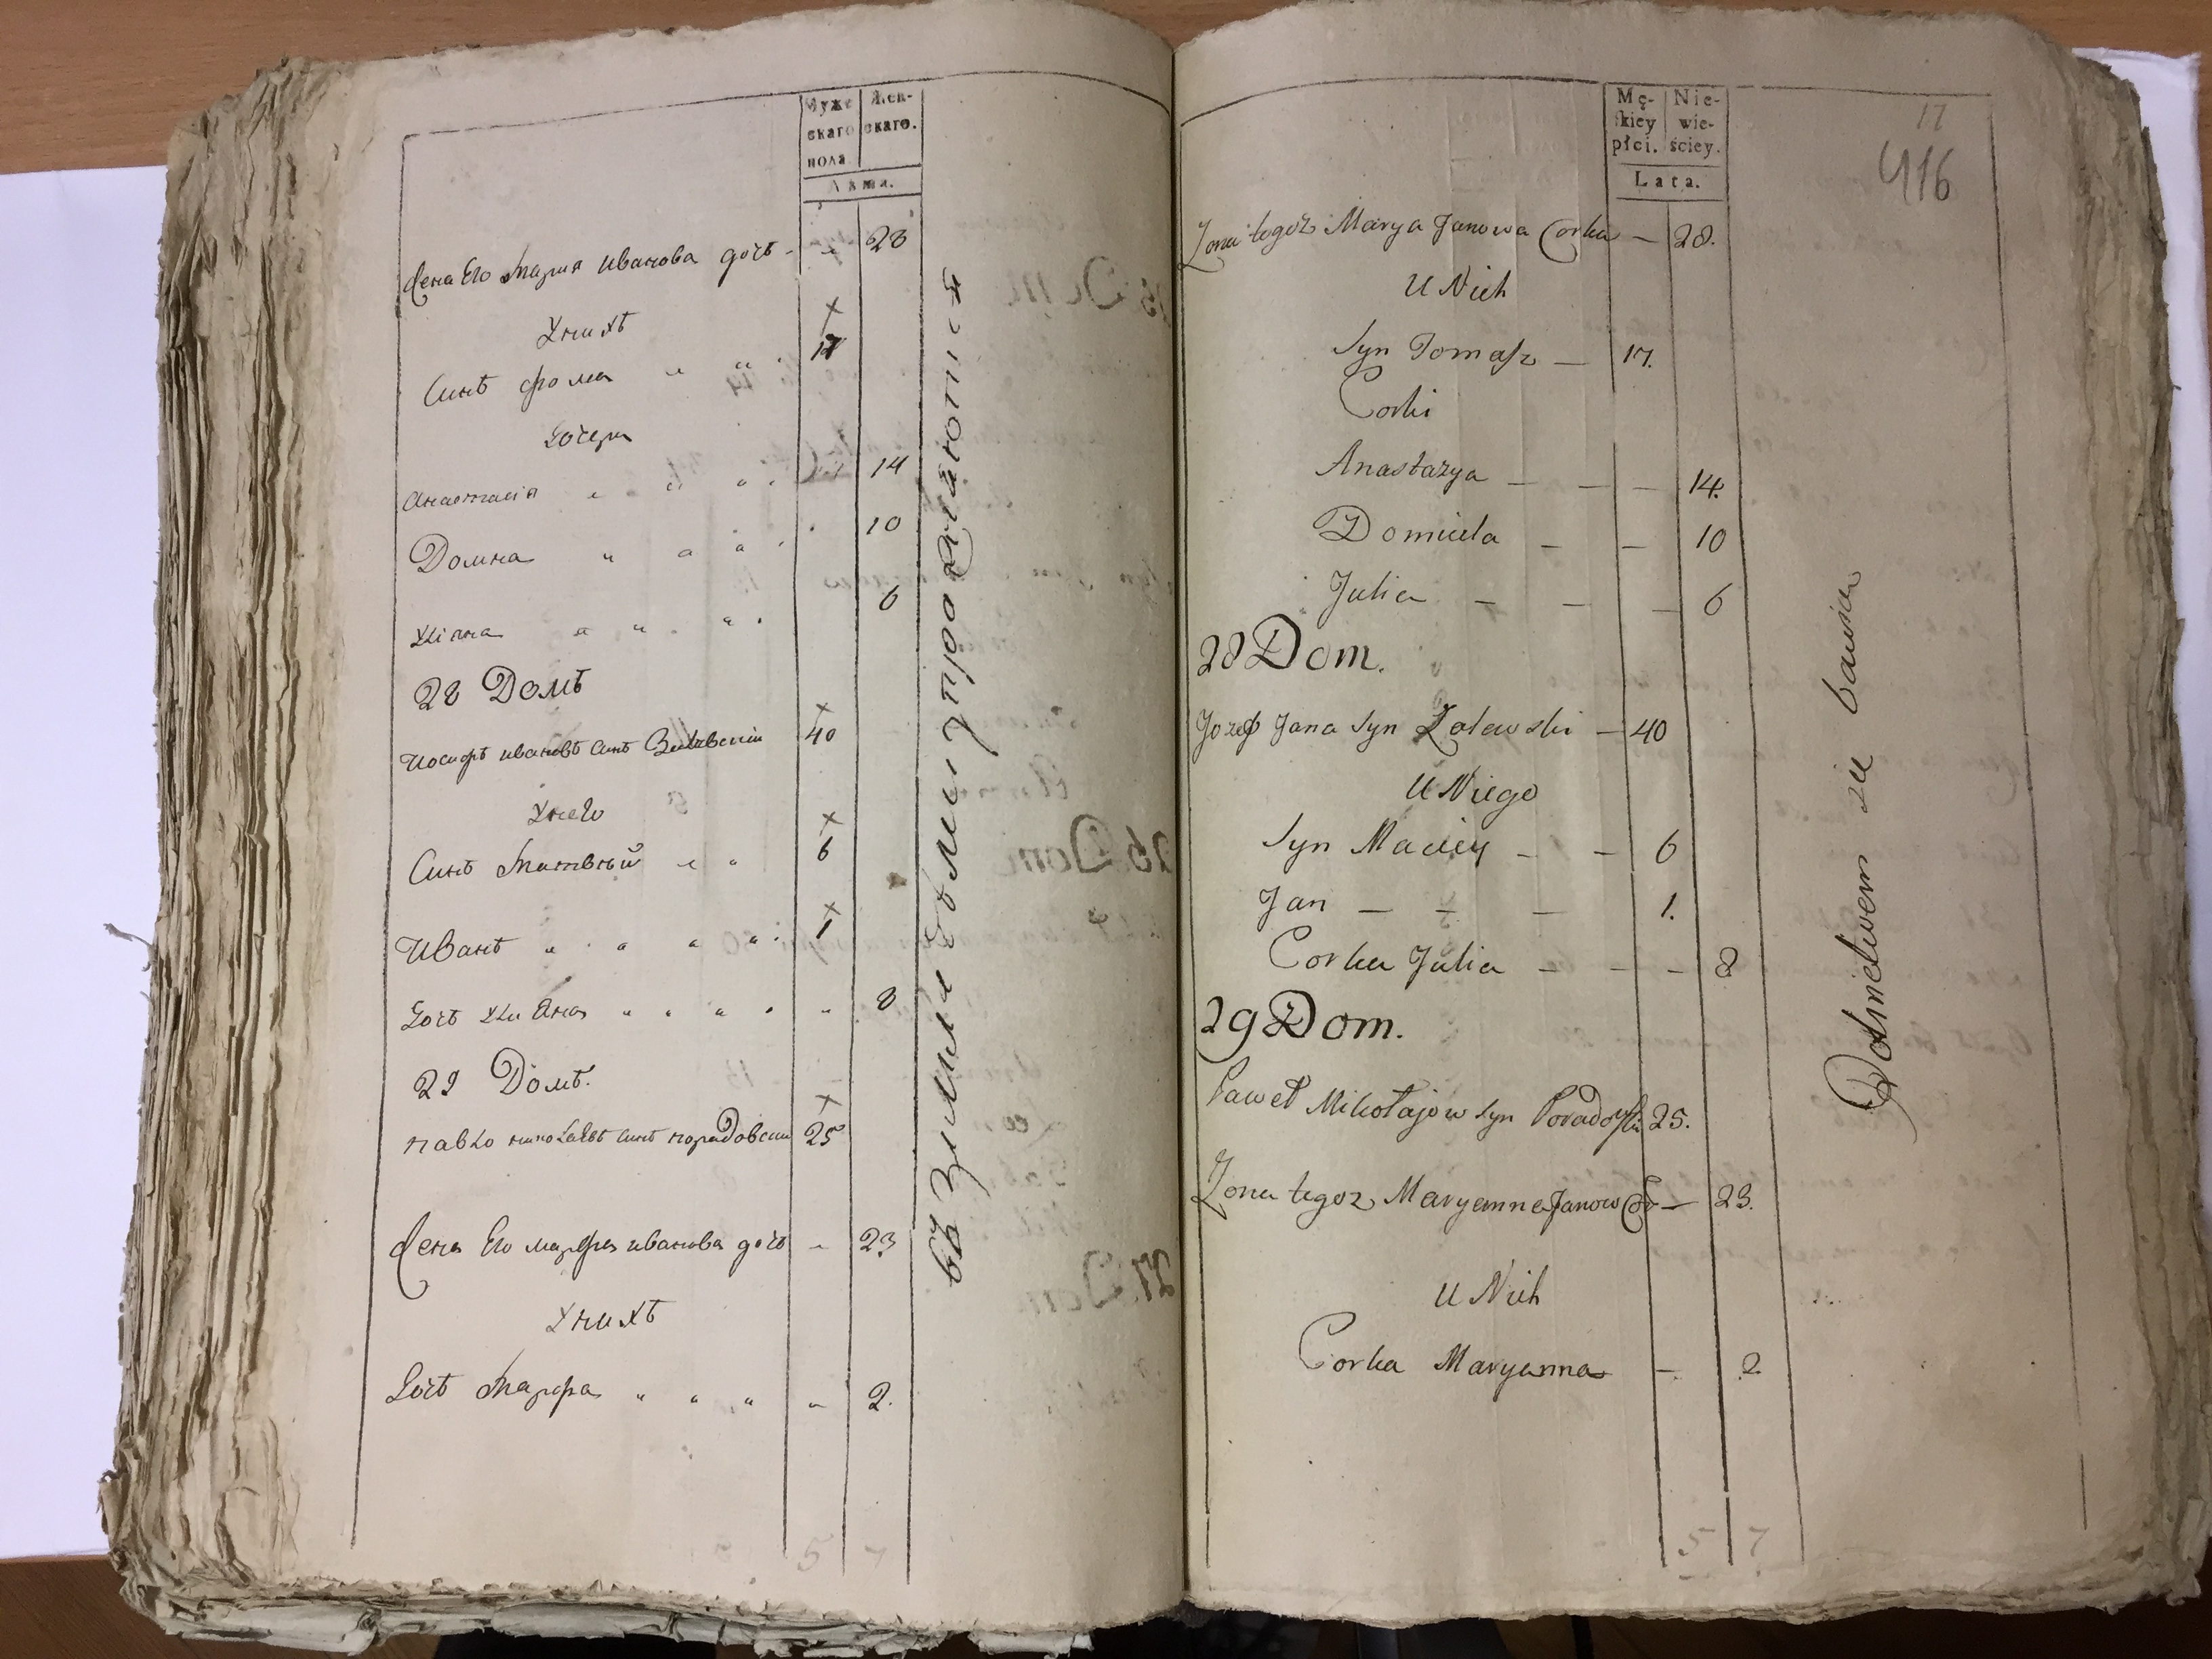 Мужескаго пола
Женскаго.
Лѣта.
Жена Его Мария иванова дочь - - 28
У нихъ
Синъ фома 17
Дочери
Анастасiя 14
Домна 10
6
28 Домъ
Иосифъ ивановъ синъ 40
У него
Синъ Матвѣй 6
Иванъ 1
Дочь 8
29 Домъ.
павло николаевъ синъ порадовски 25
Жена Его марфа иванова дочь - 23
У нихъ
Дочь Марфа 2.
5 7
въ земледѣлии упражняются
Mę-
skiey
płci.
Nie-
wie-
ściey.
Lata.
17
416
Zona tegoż Marya Janowa Corka — 28.
U Nich
Syn Tomasz — 17.
Corki
Anastazya — — — 14.
Domicela — — 10
Julia — — — 6
28 Dom.
Jozef Jana Syn Zalewski — 40
U Niego
Syn Maciey — — 6
Jan — — — 1.
Corka Julia — — — 8
29 Dom.
Paweł Mikołajow Syn Poradoski 25.
Zona tegoz Maryanna Janow Cor — 23.
U Nich
Corka Maryanna — 2
5 7
Rolnictwem się bawią